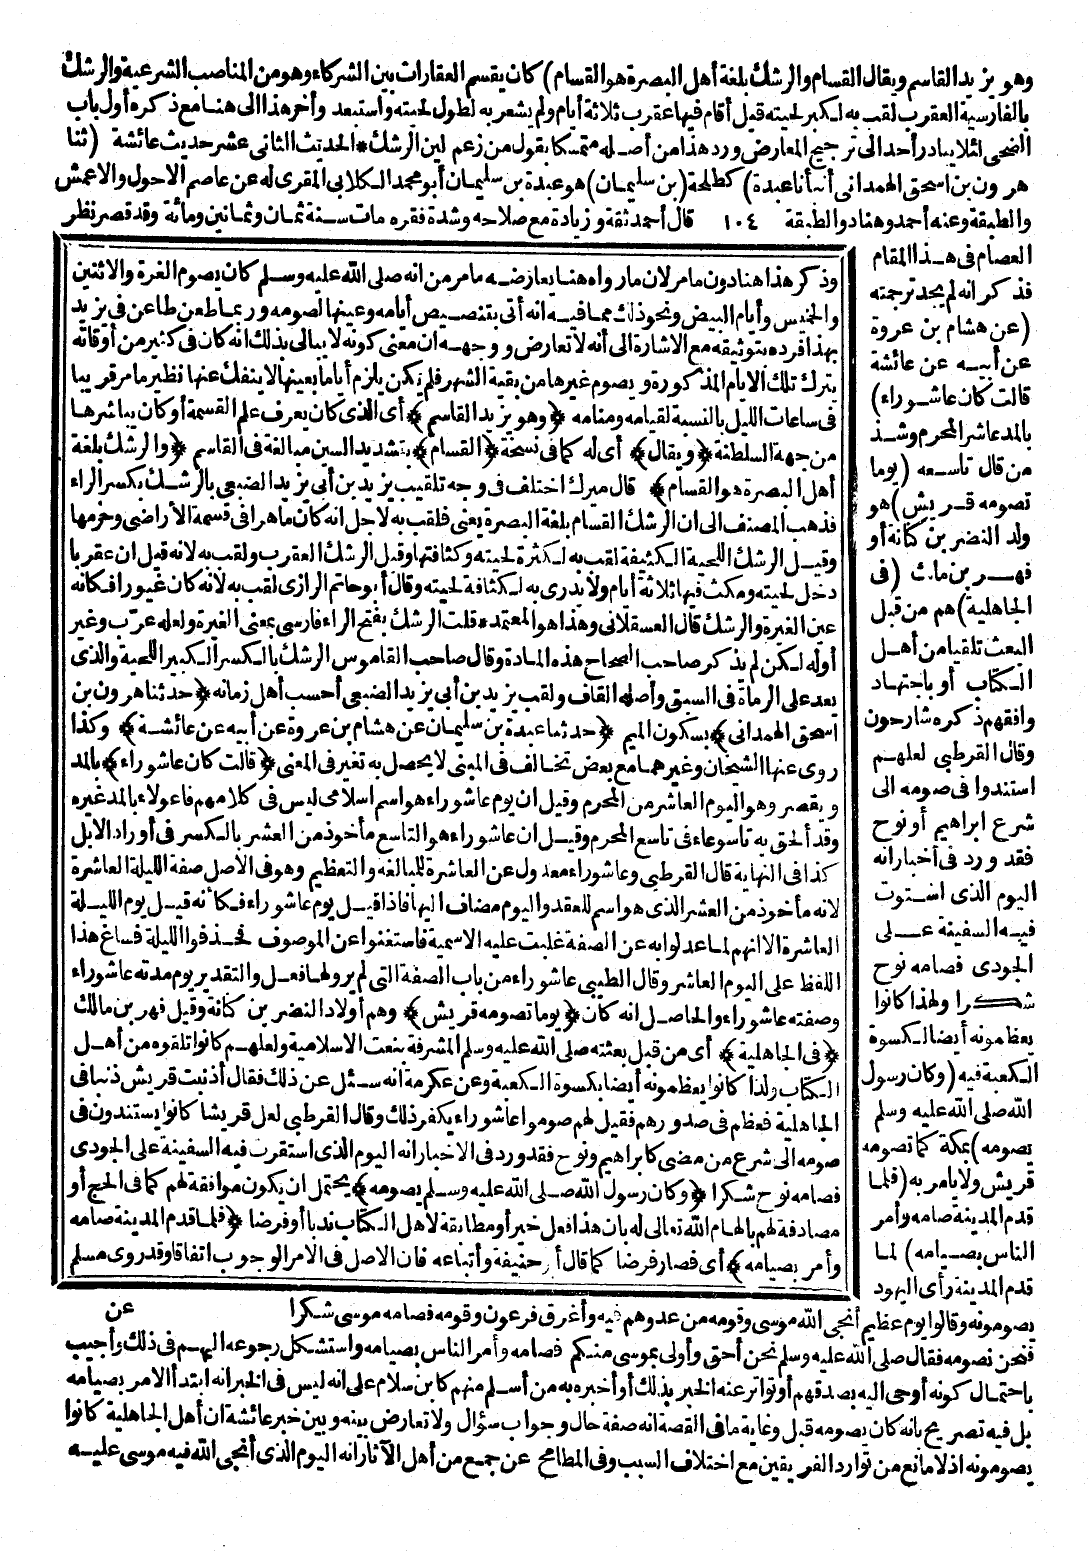 وهو يزيد القاسم ويقال القسام والرشك بلغة أهل البصرة هو القسام) كان يقسم العقارات بين الشركاء وهو من المناصب الشرعية والرشك
بالفارسية العقرب لقب به لكبر لحيته قيل أقام فيها عقرب ثلاثة أيام ولم يشعر به لطول لحيته واستبعد وأخر هذا الى هنا مع ذكره أول باب
الضحى لئلا يبادر أحد الى ترجيح المعارض ورد هذا من أصله متمسكا بقول من زعم لين الرشك * الحديث الثانى عشر حديث عائشة (ثنا
هرون بن اسحق الهمدانى أنبأنا عبدة) كطلحة (بن سليمان) هو عبدة بن سليمان أبو محمد الكلابى المقرى له عن عاصم الاحول والاعمش
والطبقة وعنه أحمد وهناد والطبقة ١٠٤ قال أحمد ثقة وزيادة مع صلاحه وشدة فقره مات سنة ثمان وثمانين ومائة وقد قصر نظر
العصام فى هذا المقام
فذكر انه لم يجد ترجمته
(عن هشام بن عروة
عن أبيه عن عائشة
قالت كان عاشوراء)
بالمد عاشر المحرم وشذ
من قال تاسعه (يوما
تصومه قريش) هو
ولد النضر بن كنانة أو
فهر بن مالك (فى
الجاهلية) هم من قبل
البعث تلقيا من أهل
الكتاب أو باجتهاد
وافقهم ذكره شارحون
وقال القرطبى لعلهم
استندوا فى صومه الى
شرع ابراهيم أو نوح
فقد ورد فى أخبارانه
اليوم الذى استوت
فيه السفينة على
الجودى فصامه نوح
شكرا ولهذا كانوا
يعظمونه أيضا لكسوة
الكعبة فيه (وكان رسول
الله صلى الله عليه وسلم
يصومه) بمكة كما تصومه
قريش ولا يامر به (فلما
قدم المدينة صامه وأمر
الناس بصيامه) لما
قدم المدينة رأى اليهود
وذكر هذا هنا دون ما مر لان مارواه هنا يعارضه ما مر من انه صلى الله عليه وسلم كان يصوم الغرة والاثنين
والخميس وأيام البيض ونحو ذلك مما فيه انه أتى بتخصيص أيامه وعينها لصومه وربما طعن طاعن فى يزيد
بهذا فرده بتوثيقه مع الاشارة الى أنه لا تعارض ووجهه ان معنى كونه لا يبالى بذلك انه كان فى كثير من أوقاته
يترك تلك الايام المذكورة ويصوم غيرها من بقية الشهر فلم يكن يلزم أياما بعينها لا ينفك عنها نظير ما مر قريبا
فى ساعات الليل بالنسبة لقيامه ومنامه ﴿وهو يزيد القاسم﴾ أى الذى كان يعرف علم القسمة أو كان يباشرها
من جهة السلطنة ﴿ويقال﴾ أى له كما فى نسخة ﴿القسام﴾ بتشديد السين مبالغة فى القاسم ﴿والرشك بلغة
أهل البصرة هو القسام﴾ قال ميرك اختلف فى وجه تلقيب يزيد بن أبى يزيد الضبعى بالرشك بكسر الراء
فذهب المصنف الى ان الرشك القسام بلغة البصرة يعنى فلقب به لاجل انه كان ماهرا فى قسمة الأراضى وحزمها
وقيل الرشك اللحية الكثيفة لقب به لكثرة لحيته وكثافتها وقيل الرشك العقرب ولقب به لانه قيل ان عقربا
دخل لحيته ومكث فيها ثلاثة أيام ولا يدرى به لكثافة لحيته وقال أبو حاتم الرازى لقب به لانه كان غيورا فكانه
عين الغيرة والرشك قال العسقلانى وهذا هو المعتمد * قلت الرشك بفتح الراء فارسى بمعنى الغيرة ولعله عرّب وغير
أوله لكن لم يذكر صاحب الصحاح هذه المادة وقال صاحب القاموس الرشك بالكسر الكبير اللحية والذى
يعد على الرماة فى السبق وأصله القاف ولقب يزيد بن أبى يزيد الضبعى أحسب أهل زمانه ﴿حدثنا هرون بن
اسحق الهمدانى﴾ بسكون الميم ﴿حدثنا عبدة بن سليمان عن هشام بن عروة عن أبيه عن عائشة﴾ وكذا
روى عنها الشيخان وغيرهما مع بعض تخالف فى المبنى لا يحصل به تغير فى المعنى ﴿قالت كان عاشوراء﴾ بالمد
ويقصر وهو اليوم العاشر من المحرم وقيل ان يوم عاشوراء هو اسم اسلامى ليس فى كلامهم فاعولاء بالمد غيره
وقد ألحق به تاسوعاء فى تاسع المحرم وقيل ان عاشوراء هو التاسع مأخوذ من العشر بالكسر فى أوراد الابل
كذا فى النهاية قال القرطبى وعاشوراء معدول عن العاشرة للمبالغة والتعظيم وهو فى الاصل صفة الليلة العاشرة
لانه مأخوذ من العشر الذى هو اسم للعقد واليوم مضاف اليها فاذا قيل يوم عاشوراء فكأنه قيل يوم الليلة
العاشرة الا انهم لما عدلوا به عن الصفة غلبت عليه الاسمية فاستغنوا عن الموصوف فحذفوا الليلة فساغ هذا
اللفظ على اليوم العاشر وقال الطيبى عاشوراء من باب الصفة التى لم يرو لها فعل والتقدير يوم مدته عاشوراء
وصفته عاشوراء والحاصل انه كان ﴿يوما تصومه قريش﴾ وهم أولاد النضر بن كنانة وقيل فهر بن مالك
﴿فى الجاهلية﴾ أى من قبل بعثته صلى الله عليه وسلم المشرفة بنعت الاسلامية ولعلهم كانوا تلقوه من أهل
الكتاب ولذا كانوا يعظمونه أيضا بكسوة الكعبة وعن عكرمة انه سئل عن ذلك فقال أذنبت قريش ذنبا فى
الجاهلية فعظم فى صدورهم فقيل لهم صوموا عاشوراء يكفر ذلك وقال القرطبى لعل قريشا كانوا يستندون فى
صومه الى شرع من مضى كابراهيم ونوح فقد ورد فى الاخبار انه اليوم الذى استقرت فيه السفينة على الجودى
فصامه نوح شكرا ﴿وكان رسول الله صلى الله عليه وسلم يصومه﴾ يحتمل ان يكون موافقة لهم كما فى الحج أو
مصادفة لهم بالهام الله تعالى له بان هذا فعل خير أو مطابقة لاهل الكتاب ندبا أو فرضا ﴿فلما قدم المدينة صامه
وأمر بصيامه﴾ أى فصار فرضا كما قال أبو حنيفة وأتباعه فان الاصل فى الامر الوجوب اتفاقا وقد روى مسلم
عن
يصومونه وقالوا يوم عظيم أنجى الله موسى وقومه من عدوهم فيه وأغرق فرعون وقومه فصامه موسى شكرا
فنحن نصومه فقال صلى الله عليه وسلم نحن أحق وأولى بموسى منكم فصامه وأمر الناس بصيامه واستشكل رجوعه اليهم فى ذلك وأجيب
باحتمال كونه أوحى اليه بصدقهم أو تواتر عنه الخبر بذلك أو أخبره به من أسلم منهم كابن سلام على انه ليس فى الخبر انه ابتدأ الامر بصيامه
بل فيه تصريح بانه كان يصومه قبل وغاية ما فى القصة انه صفة حال وجواب سؤال ولا تعارض بينه وبين خبر عائشة ان أهل الجاهلية كانوا
يصومونه اذ لا مانع من توارد الفريقين مع اختلاف السبب وفى المطامح عن جمع من أهل الآثار انه اليوم الذى أنجى الله فيه موسى عليه